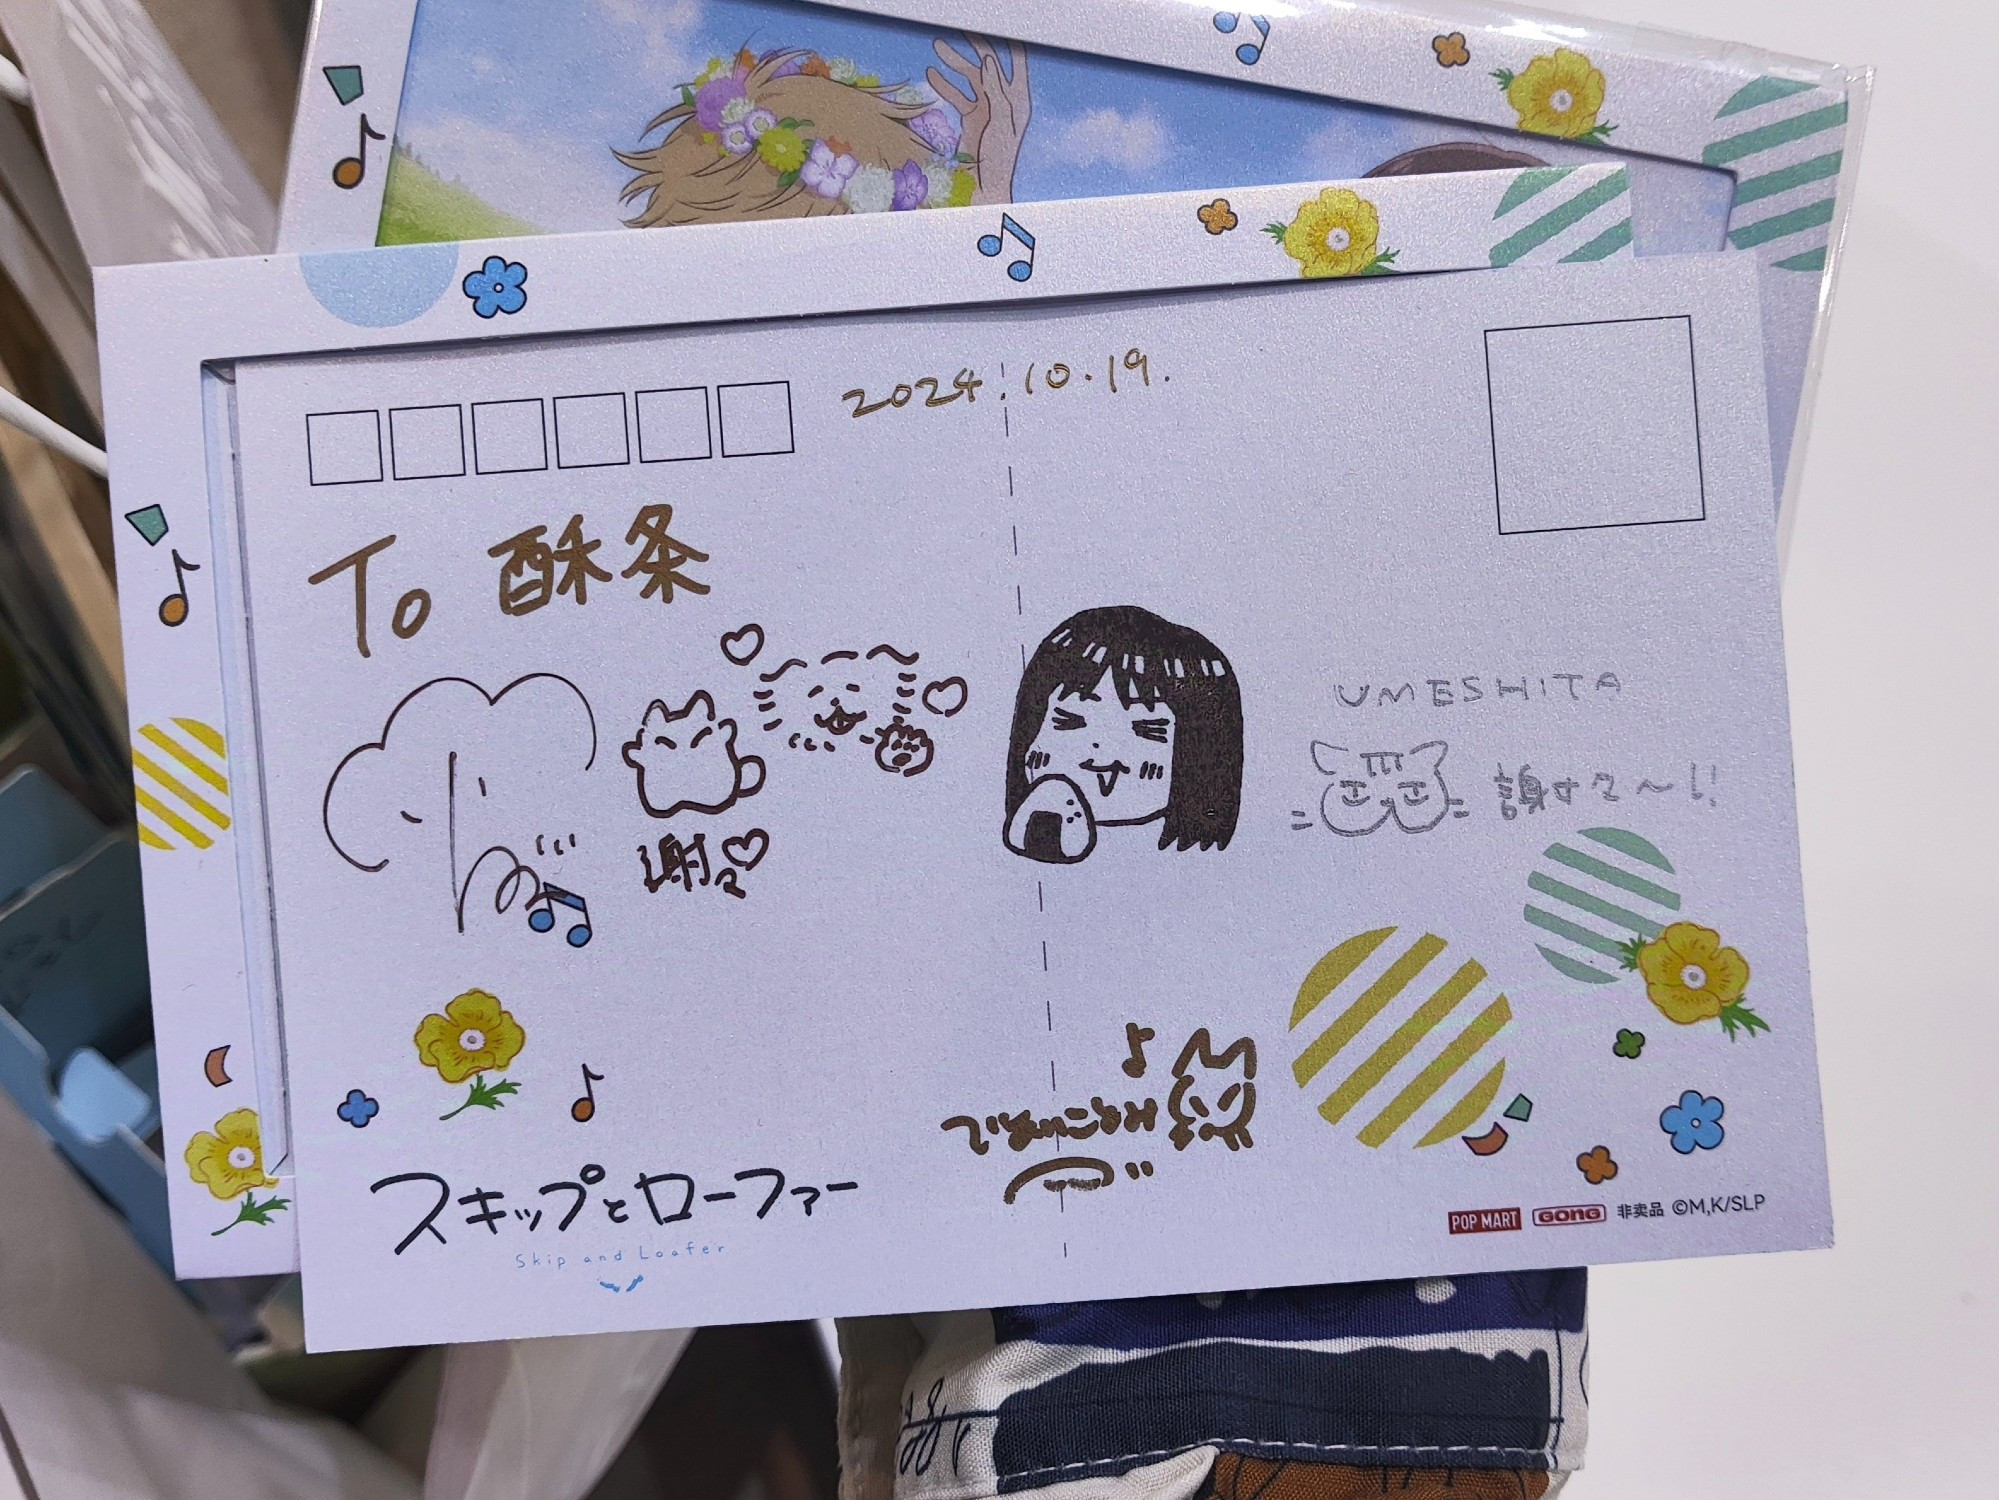 2024.10.19.
To 酥条
謝々
UMESHITA
謝す々〜!!
スキップとローファー
Skip and Loafer
POP MART GONG 非卖品 ©M,K/SLP